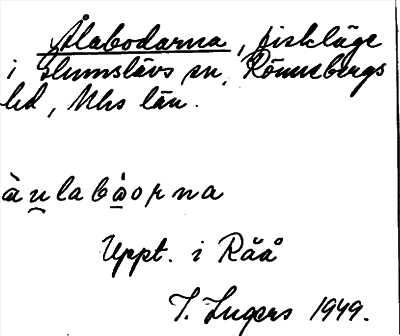 Ålabodarna, fiskläge
i Glumslövs sn, Rönnebergs
hd, Mhs län.
àu̯labåorna
Uppt. i Råå
I. Ingers 1949.